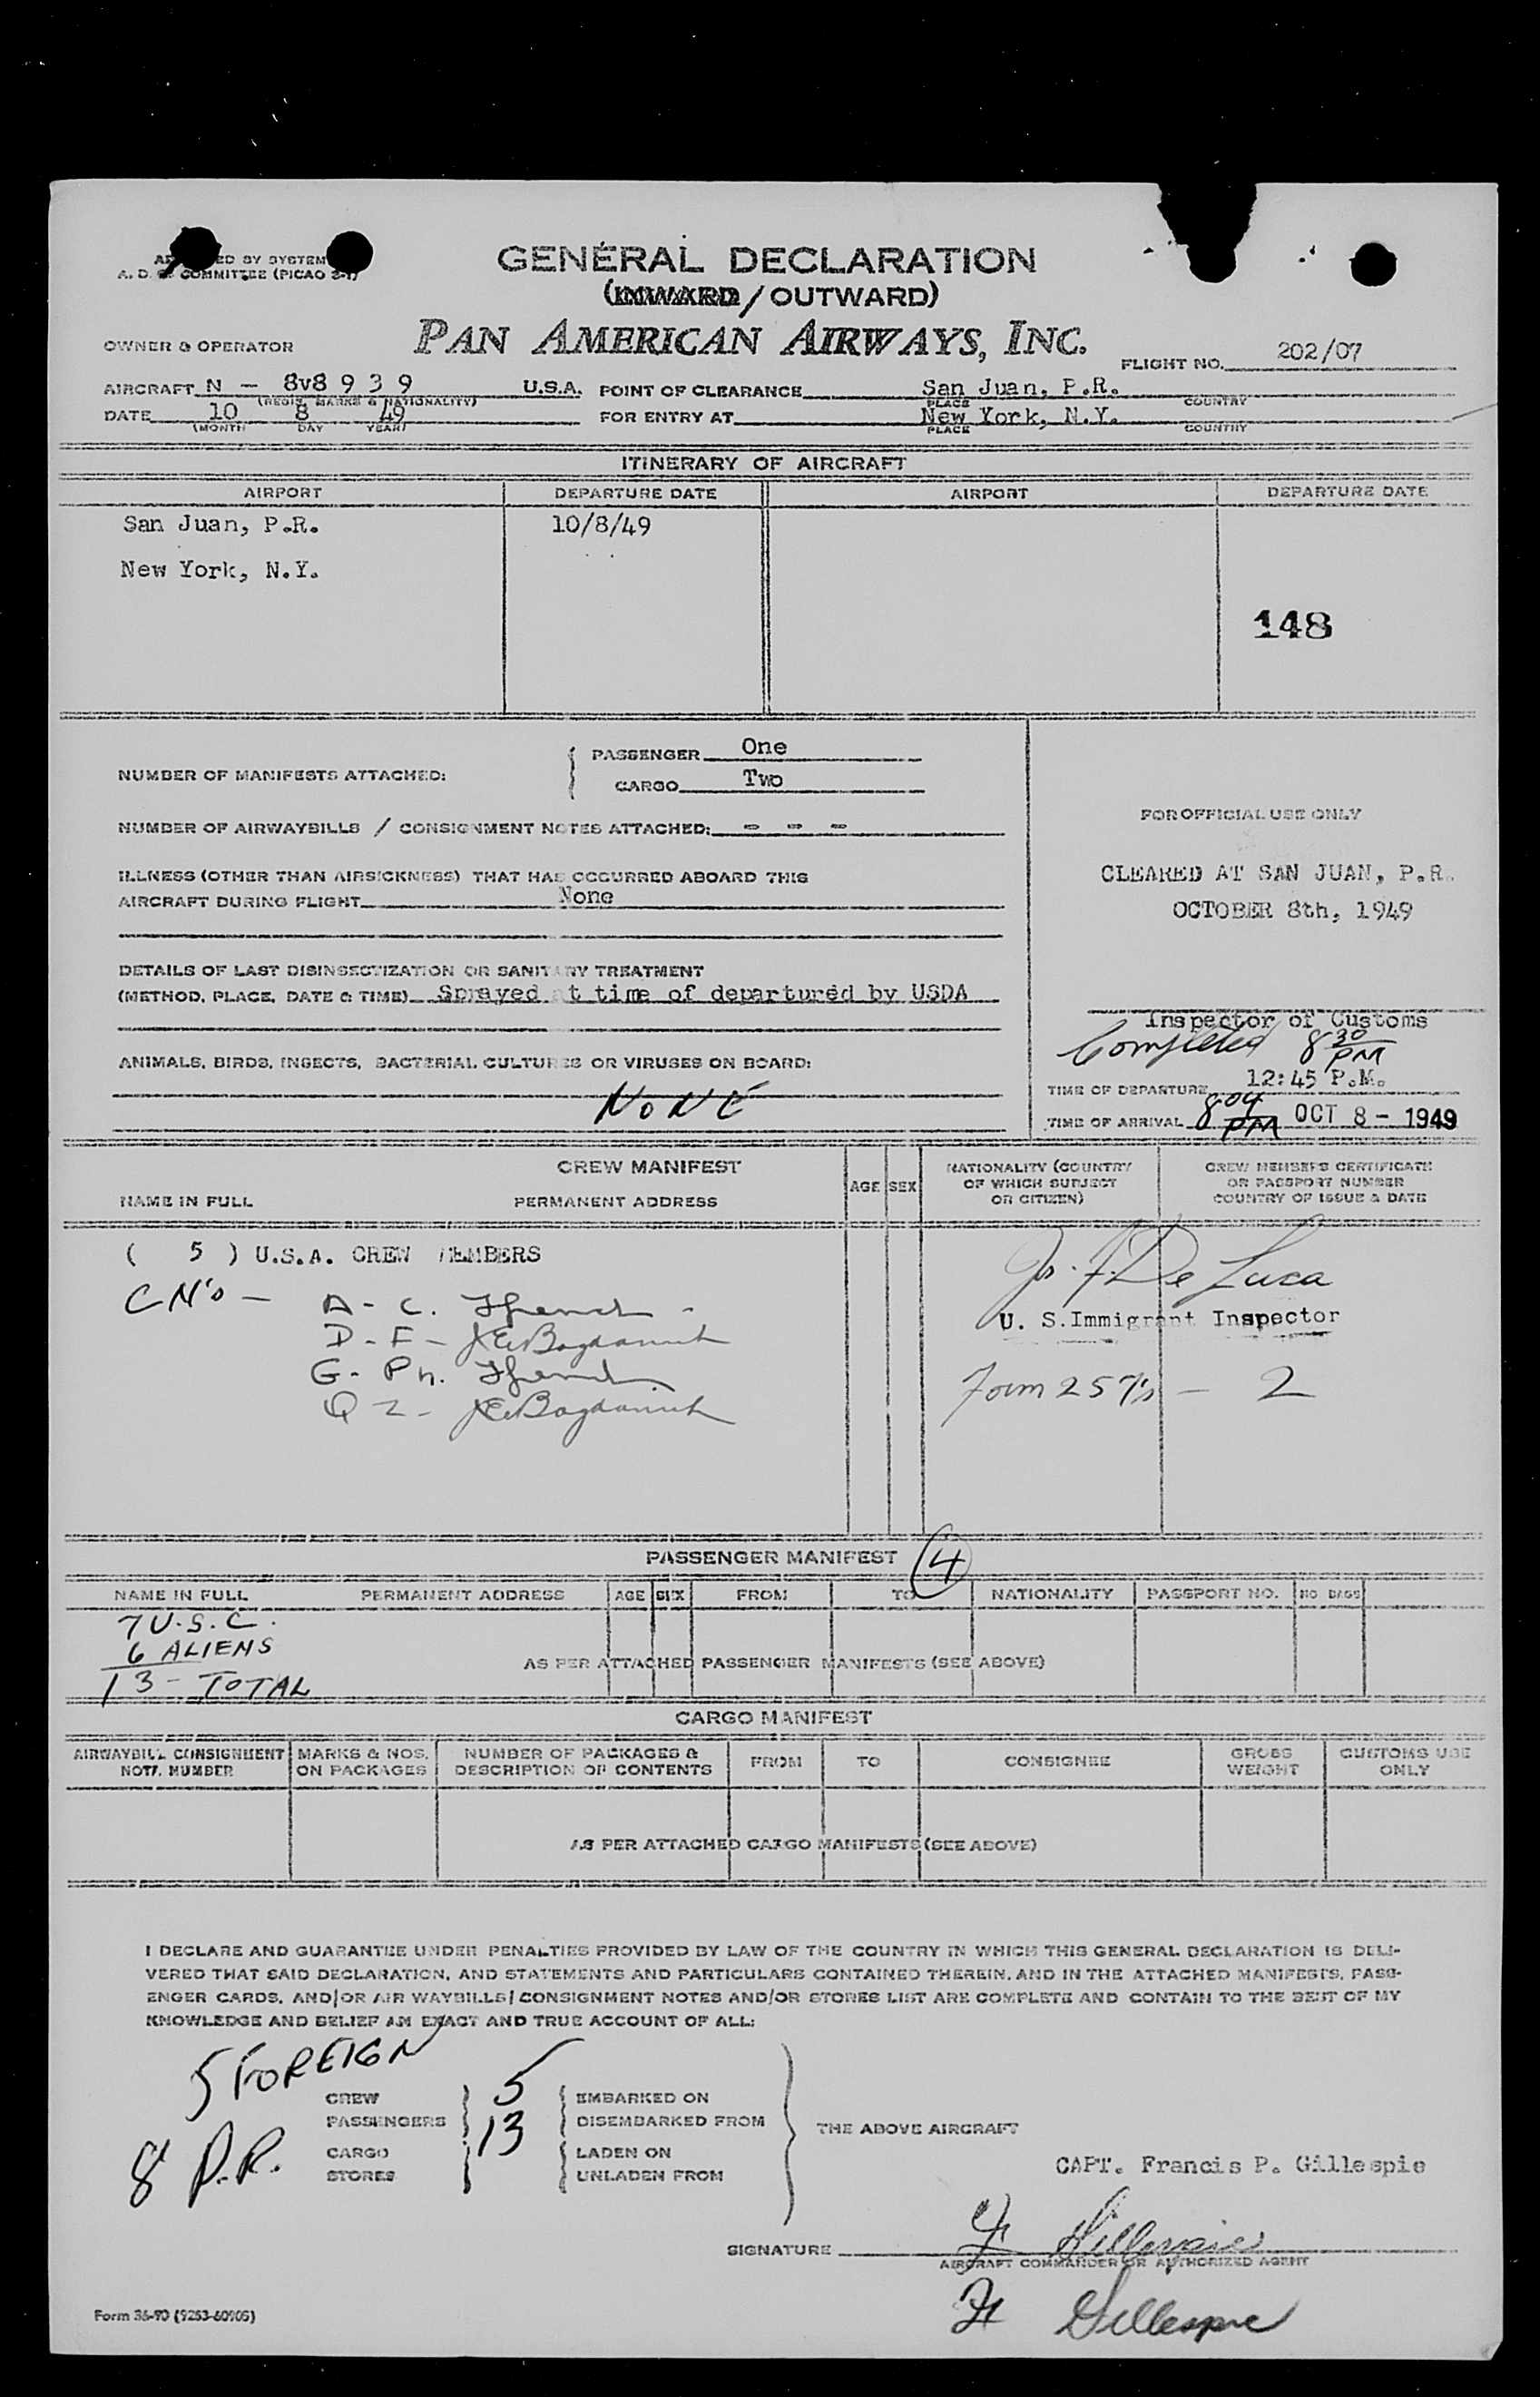 GENERAL DECLARATION
(INWARD / OUTWARD)
A. D. COMMITTEE (PICAO
OWNER & OPERATOR
PAN AMERICAN AIRWAYS, INC.
FLIGHT NO. 202/07
AIRCRAFT N - 8v8 9 3 9 U.S.A. POINT OF CLEARANCE San Juan, P.R.
(REGIS. MARKS & NATIONALITY) PLACE COUNTRY
DATE 10 8 49 FOR ENTRY AT New York, N.Y.
(MONTH DAY YEAR) PLACE COUNTRY
ITINERARY OF AIRCRAFT
AIRPORT DEPARTURE DATE AIRPORT DEPARTURE DATE
San Juan, P.R. 10/8/49
New York, N.Y.
148
NUMBER OF MANIFESTS ATTACHED: PASSENGER One
CARGO Two
NUMBER OF AIRWAYBILLS / CONSIGNMENT NOTES ATTACHED: - - -
ILLNESS (OTHER THAN AIRSICKNESS) THAT HAS OCCURRED ABOARD THIS
AIRCRAFT DURING FLIGHT None
DETAILS OF LAST DISINSECTIZATION OR SANITARY TREATMENT
(METHOD, PLACE, DATE & TIME) Sprayed at time of departured by USDA
ANIMALS, BIRDS, INSECTS, BACTERIAL CULTURES OR VIRUSES ON BOARD:
NONE
FOR OFFICIAL USE ONLY
CLEARED AT SAN JUAN, P.R.
OCTOBER 8th, 1949
Inspector of Customs
Completed 8 30 PM
TIME OF DEPARTURE 12:45 P.M.
TIME OF ARRIVAL 8 04 PM OCT 8 - 1949
CREW MANIFEST
NAME IN FULL PERMANENT ADDRESS AGE SEX NATIONALITY (COUNTRY OF WHICH SUBJECT OR CITIZEN) CREW MEMBERS CERTIFICATE OR PASSPORT NUMBER COUNTRY OF ISSUE & DATE
( 5 ) U.S.A. CREW MEMBERS
CN's -
A - C.
D - F - J E Bogdanich
G - Ph.
Q Z - J E Bogdanich
De Luca
U. S. Immigrant Inspector
Form 257's - 2
PASSENGER MANIFEST 4
NAME IN FULL PERMANENT ADDRESS AGE SEX FROM TO NATIONALITY PASSPORT NO. NO BAGS
7 U.S.C.
6 ALIENS
13 - TOTAL
AS PER ATTACHED PASSENGER MANIFESTS (SEE ABOVE)
CARGO MANIFEST
AIRWAYBILL CONSIGNMENT NOTE NUMBER MARKS & NOS. ON PACKAGES NUMBER OF PACKAGES & DESCRIPTION OF CONTENTS FROM TO CONSIGNEE GROSS WEIGHT CUSTOMS USE ONLY
AS PER ATTACHED CARGO MANIFESTS (SEE ABOVE)
I DECLARE AND GUARANTEE UNDER PENALTIES PROVIDED BY LAW OF THE COUNTRY IN WHICH THIS GENERAL DECLARATION IS DELI-
VERED THAT SAID DECLARATION, AND STATEMENTS AND PARTICULARS CONTAINED THEREIN, AND IN THE ATTACHED MANIFESTS, PASS-
ENGER CARDS, AND/OR AIR WAYBILLS/CONSIGNMENT NOTES AND/OR STORES LIST ARE COMPLETE AND CONTAIN TO THE BEST OF MY
KNOWLEDGE AND BELIEF AN EXACT AND TRUE ACCOUNT OF ALL:
5 FOREIGN
8 P.R.
CREW 5 EMBARKED ON
PASSENGERS 13 DISEMBARKED FROM
CARGO LADEN ON
STORES UNLADEN FROM
THE ABOVE AIRCRAFT
CAPT. Francis P. Gillespie
SIGNATURE F Gillespie
AIRCRAFT COMMANDER OR AUTHORIZED AGENT
Gillespie
Form 36-90 (9253-60905)